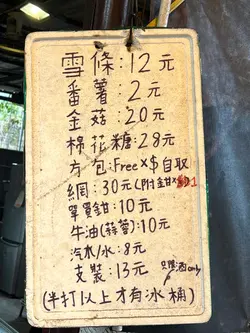 雪條:12元
番薯:2元
金菇:20元
棉花糖:28元
方包:Free×$自取
網:30元(附金甘×1
單買鉗:10元
牛油(蒜蓉):10元
汽水/水:8元
支裝:13元 只啤酒only
(半打以上才有冰桶)